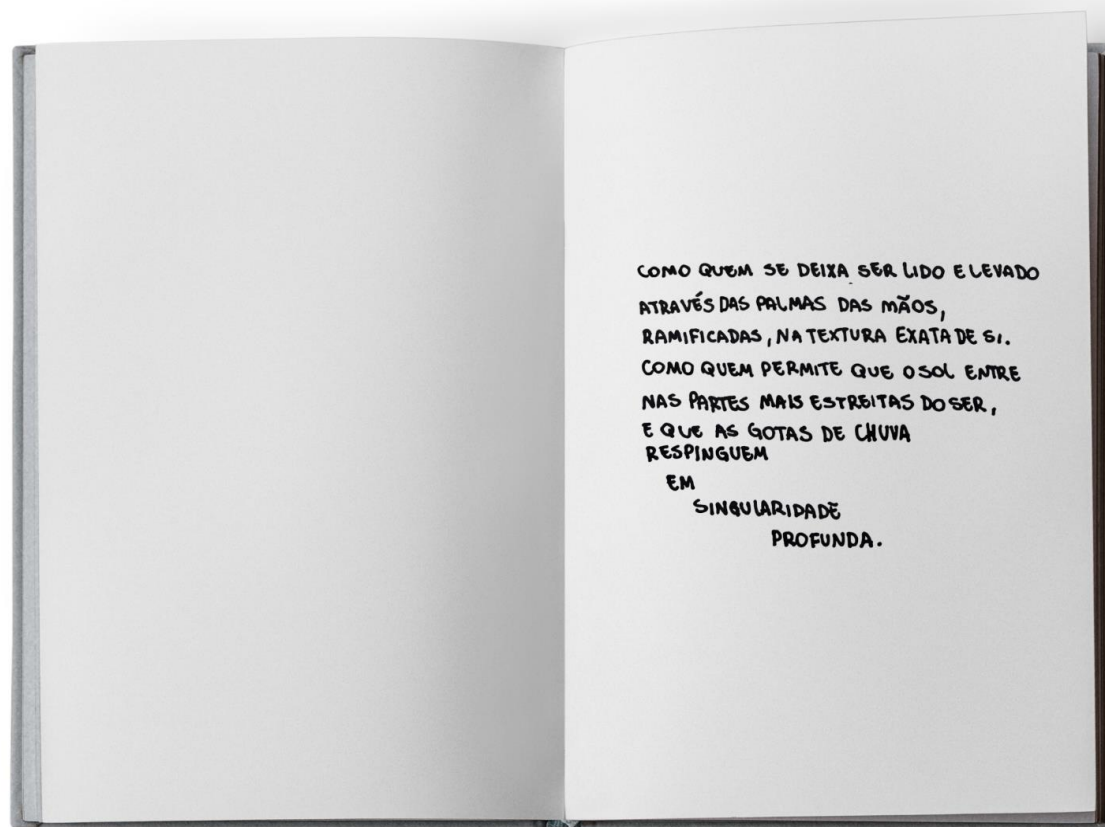 COMO QUEM SE DEIXA SER LIDO E LEVADO
ATRAVÉS DAS PALMAS DAS MÃOS,
RAMIFICADAS, NA TEXTURA EXATA DE SI.
COMO QUEM PERMITE QUE O SOL ENTRE
NAS PARTES MAIS ESTREITAS DO SER,
E QUE AS GOTAS DE CHUVA
RESPINGUEM
EM
SINGULARIDADE
PROFUNDA.